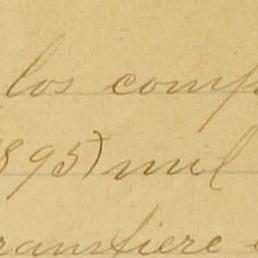 los comp
895) mil
ransfiere e